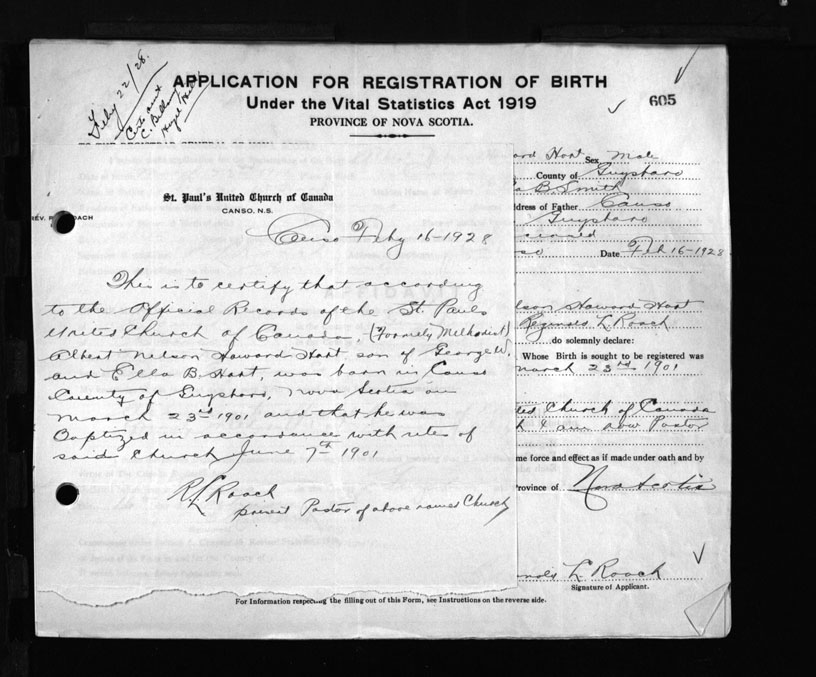 Feby 22/28.
Cert sent
C. Bill
Hazel Hill
APPLICATION FOR REGISTRATION OF BIRTH
Under the Vital Statistics Act 1919
PROVINCE OF NOVA SCOTIA.
605
St. Paul's United Church of Canada
CANSO, N.S.
REV. R. ROACH
Canso Feby 16-1928
This is to certify that according
to the Official Records of the St. Pauls
United Church of Canada, (Formerly Methodist)
Albert Nelson Howard Hart, son of George W.
and Ella B. Hart, was born in Canso
County of Guysboro, Nova Scotia on
March 23rd 1901 and that he was
Baptized in accordance with rites of
said Church June 7th 1901
R L Roach
present Pastor of above named Church
ard Hart Sex Male
County of Guysboro
a B Smith
ddress of Father Canso
Guysboro
so Date Feb 16-1928
lson Howard Hart
Reginald L. Roach
do solemnly declare:
Whose Birth is sought to be registered was
March 23rd 1901
ted Church of Canada
h & am now Pastor
me force and effect as if made under oath and by
rovince of Nova Scotia
L Roach
Signature of Applicant.
For Information respecting the filling out of this Form, see Instructions on the reverse side.